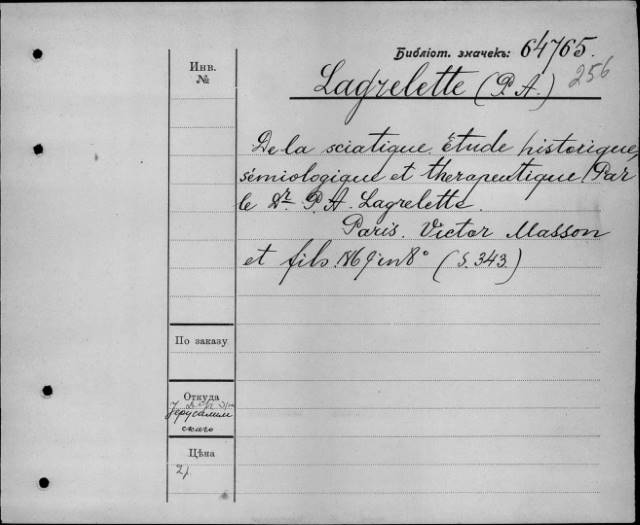 Библіот. значекъ: 64765.
256
Lagrelette (P. A.)
Инв.
№
De la sciatique. Étude historique,
sémiologique et therapeutique Par
le Dr. P. A. Lagrelette.
Paris. Victor Masson
et fils. 1869 in 8° (S. 343.)
По заказу
Откуда
Іерусалим
скаго
Цѣна
2 р.